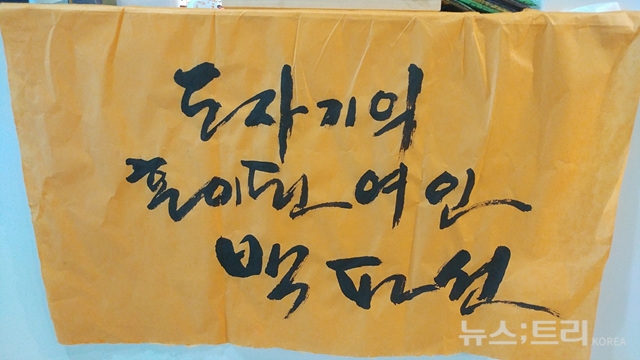 도자기의
꽃이 된 여인
백파선
뉴스;트리 KOREA